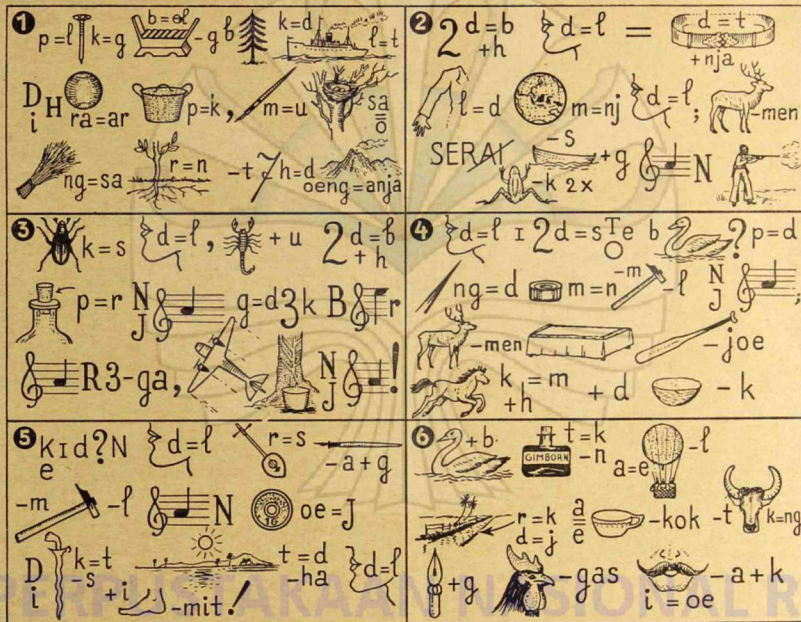 1 p=l k=g b=ol -gb k=d l=t
D i H ra=ar p=k, m=u sa=o
ng=sa r=n -t 7 h=d oeng=anja
2 2 d=b +h d=l = d=t +nja
l=d m=nj d=l; -men
SERAI -k 2x -s +g N
3 k=s d=l, +u 2 d=b +h
p=r N J g=d 3k B r
R3-ga, N J !
4 d=l I 2 d=s T e O b ? p=d
ng=d m=n -m -l N J ,
-men -joe
k=m +h +d -k
5 K e I d ? N d=l r=s -a+g
-m -l N 1G oe=J
D i k=t -s +i -mit! t=d -ha d=l
6 +b GIMBORN t=k -n a=e -l
r=k d=j a e -kok -t k=ng
+g -gas i=oe -a+k
PERPUSTAKAAN NASIONAL R